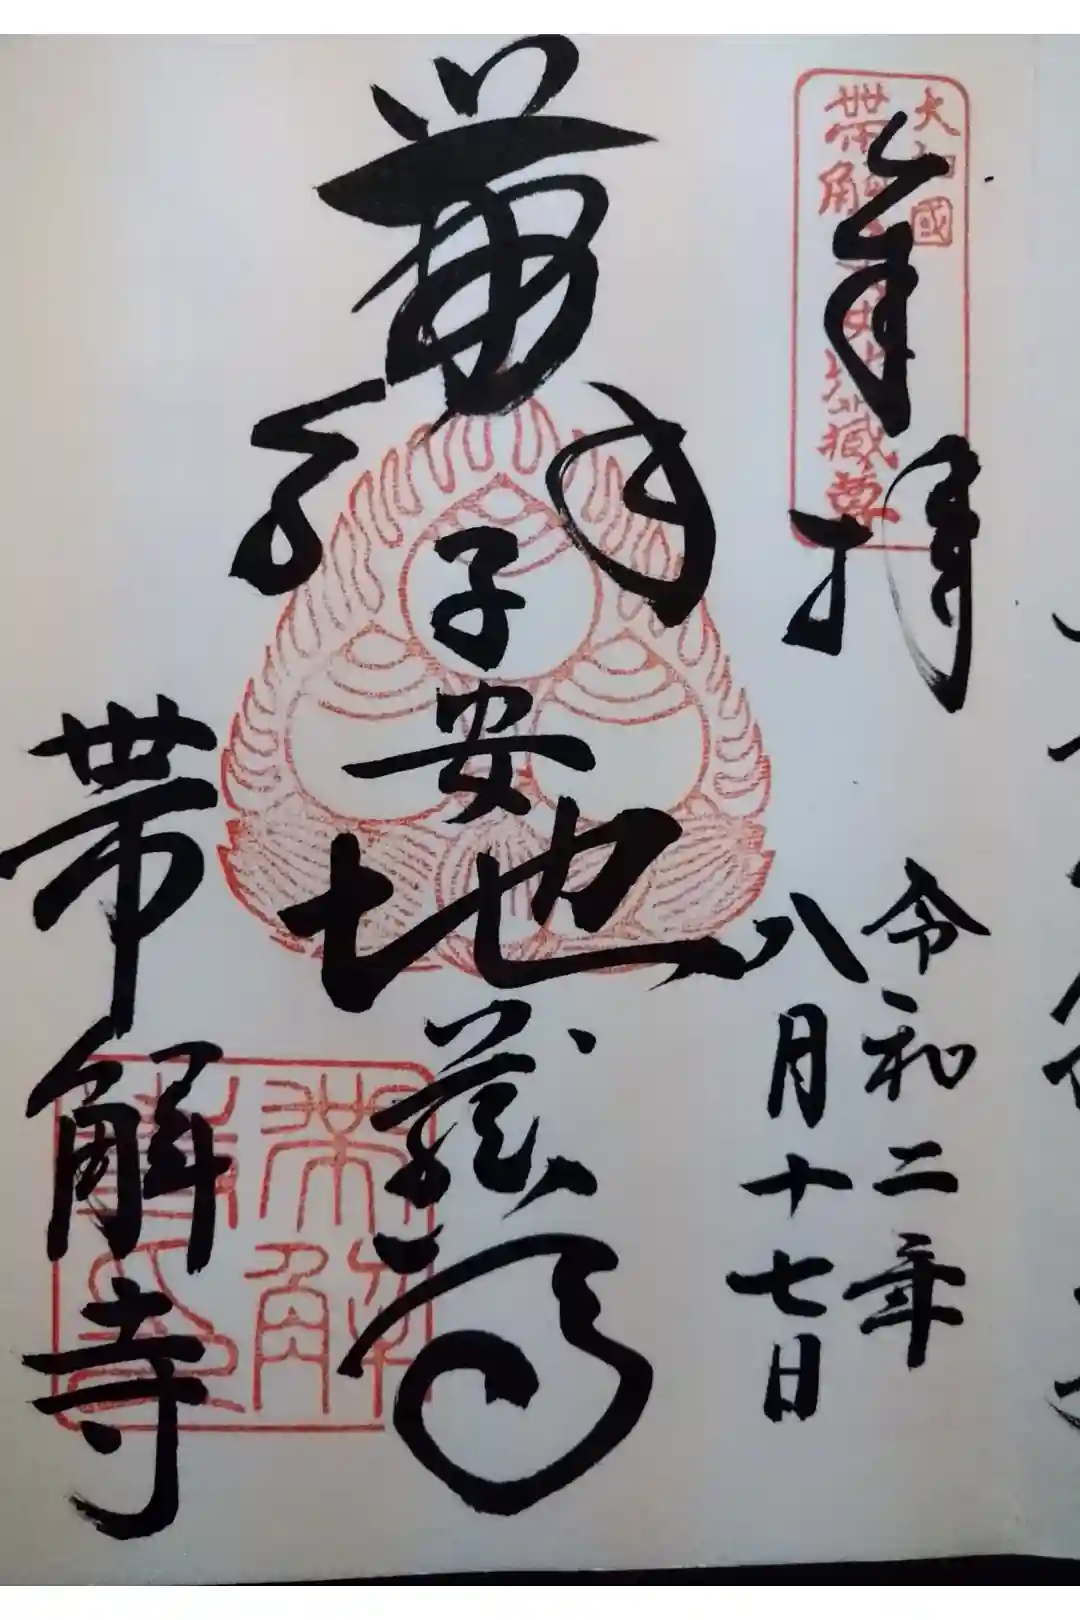 大和國
帶解子安地蔵尊
奉拝
令和二年
八月十七日
子安地蔵尊
帶解寺